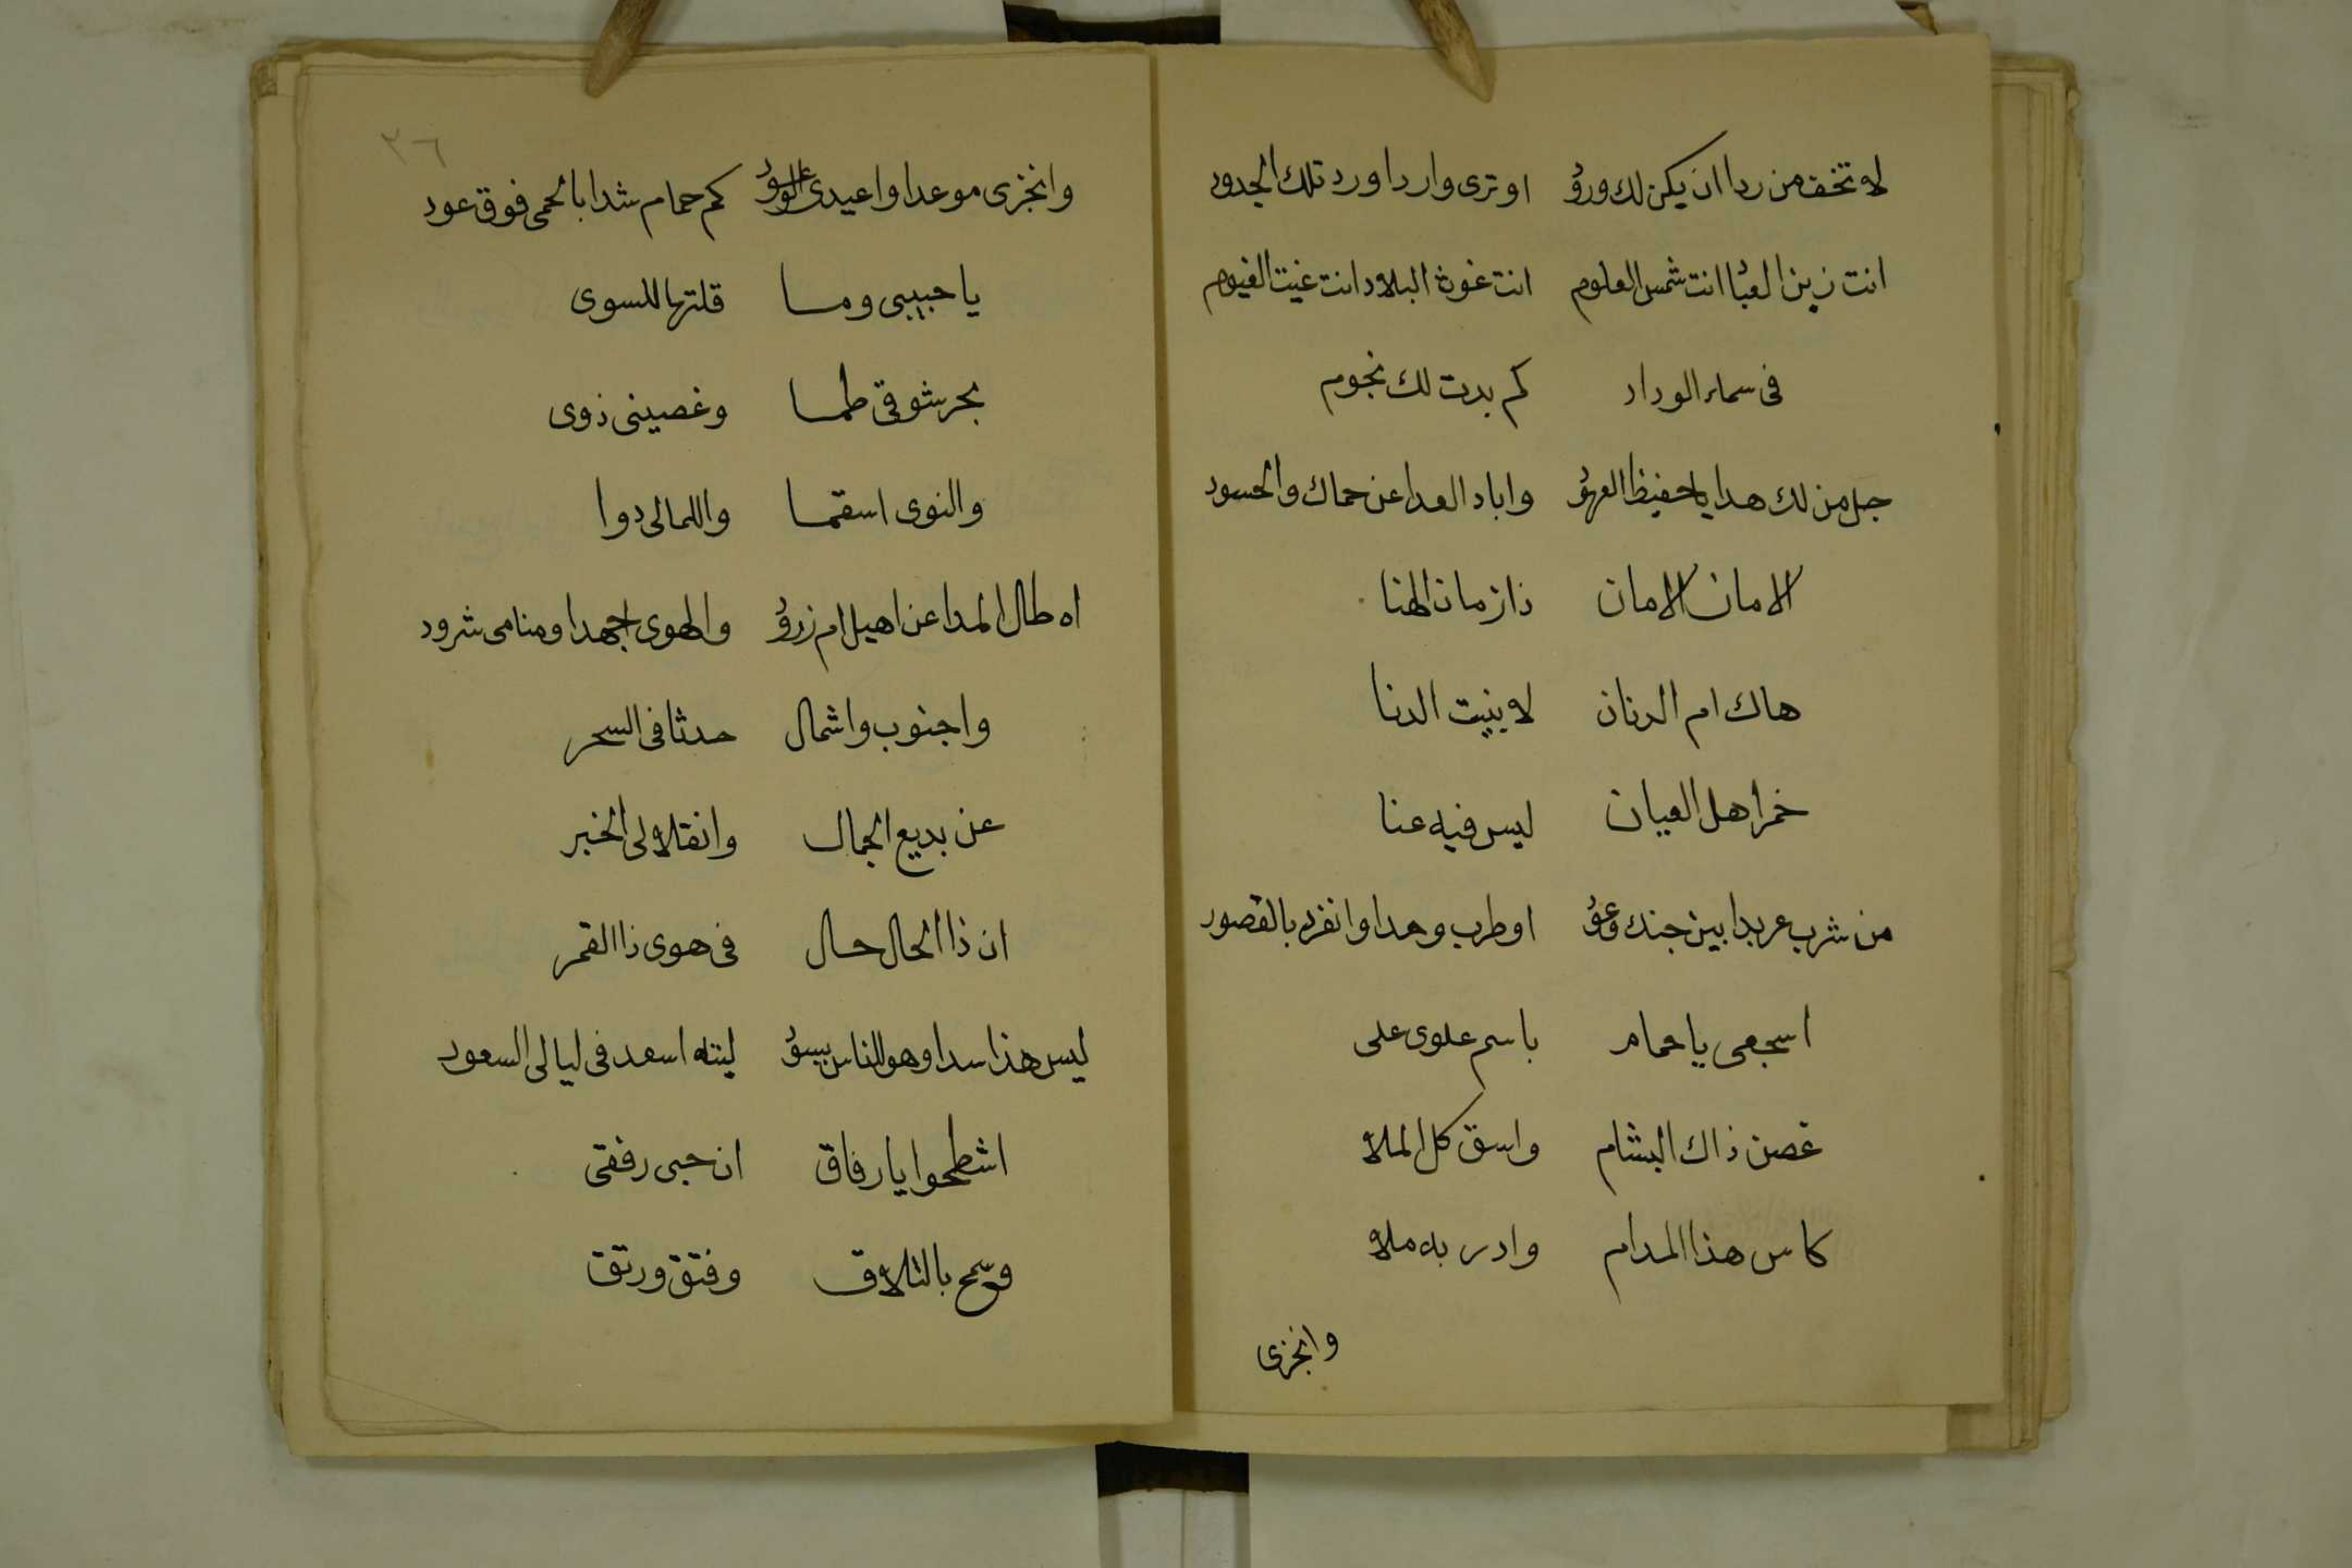 لا تخف من ردا ان يكن لك ورود او ترى واردا ورد تلك الجدود
انت زين العباد انت شمس العلوم انت غوث البلاد انت غيث الغيوم
فى سماء الوداد كم بدت لك نجوم
جل من لك هدا يا حفيظ العهود واباد العدا عن حماك والحسود
الامان الامان ذا زمان الهنا
هاك ام الدنان لا بنيت الدنا
خمر اهل العيان ليس فيه عنا
من شرب عربدا بين جنك وعود او طرب وهدا وانفرد بالقصور
اسجعى يا حمام باسم علوى على
غصن ذاك البشام واسق كل الملا
كاس هذا المدام وادر به ملا
وانجزى
٣٦
وانجزى موعدا واعيدى كم حمام شدا بالحمى فوق عود
يا حبيبى وما قلتها للسوى
بحر شوقى طما وغصينى ذوى
والنوى اسقما واللما لى دوا
اه طال المدا عن اهيل ام زرود والهوى اجهدا ومنامى شرود
واجنوب واشمال حدثا فى السحر
عن بديع الجمال وانقلا لى الخبر
ان ذا الحال حال فى هوى ذا القمر
ليس هذا سدا وهو للناس يسود ليته اسعد فى ليالى السعود
اشطحوا يا رفاق ان حبى رفقى
وسمح بالتلاق وفتق ورتق